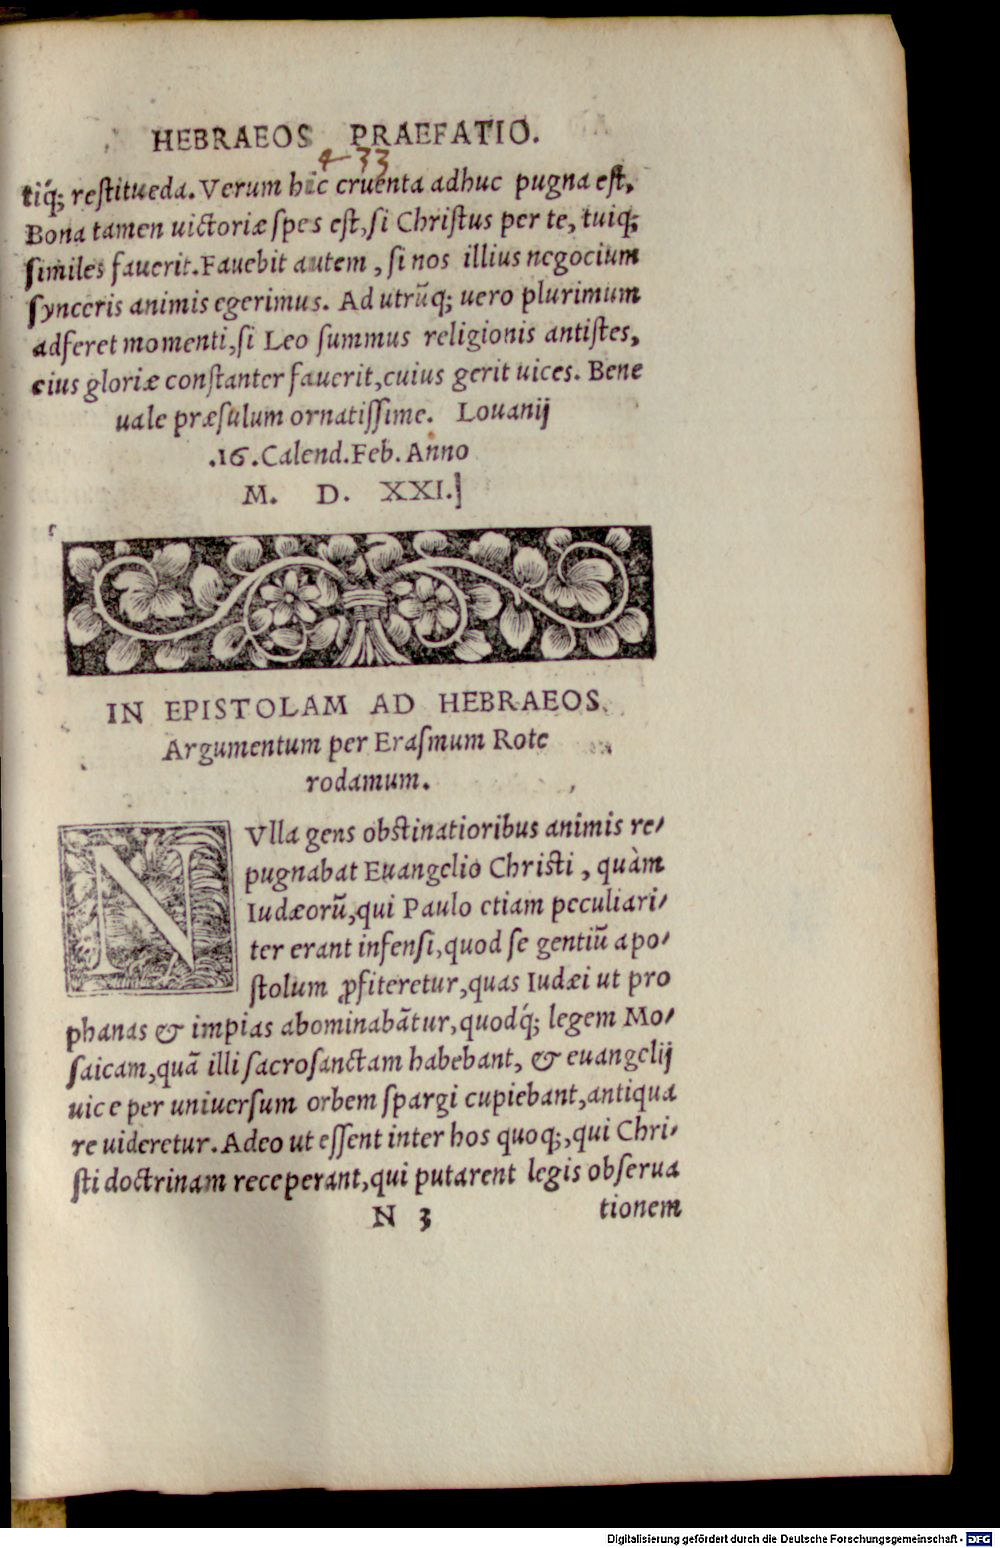 HEBRAEOS PRAEFATIO.
433
tiq́; restitueda. Verum hic cruenta adhuc pugna est,
Bona tamen uictoriæ spes est, si Christus per te, tuiq;
similes fauerit. Fauebit autem, si nos illius negocium
synceris animis egerimus. Ad utrũq; uero plurimum
adferet momenti, si Leo summus religionis antistes,
eius gloriæ constanter fauerit, cuius gerit uices. Bene
uale præsulum ornatissime. Louanij
.16. Calend. Feb. Anno
M. D. XXI.
IN EPISTOLAM AD HEBRAEOS.
Argumentum per Erasmum Rote
rodamum.
NVlla gens obstinatioribus animis re-
pugnabat Euangelio Christi, quàm
Iudæorũ, qui Paulo etiam peculiari-
ter erant infensi, quod se gentiũ apo-
stolum ꝓfiteretur, quas Iudæi ut pro
phanas & impias abominabãtur, quodq́; legem Mo-
saicam, quã illi sacrosanctam habebant, & euangelij
uice per uniuersum orbem spargi cupiebant, antiqua
re uideretur. Adeo ut essent inter hos quoq;, qui Chri-
sti doctrinam receperant, qui putarent legis obserua
N 3 tionem
Digitalisierung gefördert durch die Deutsche Forschungsgemeinschaft - DFG